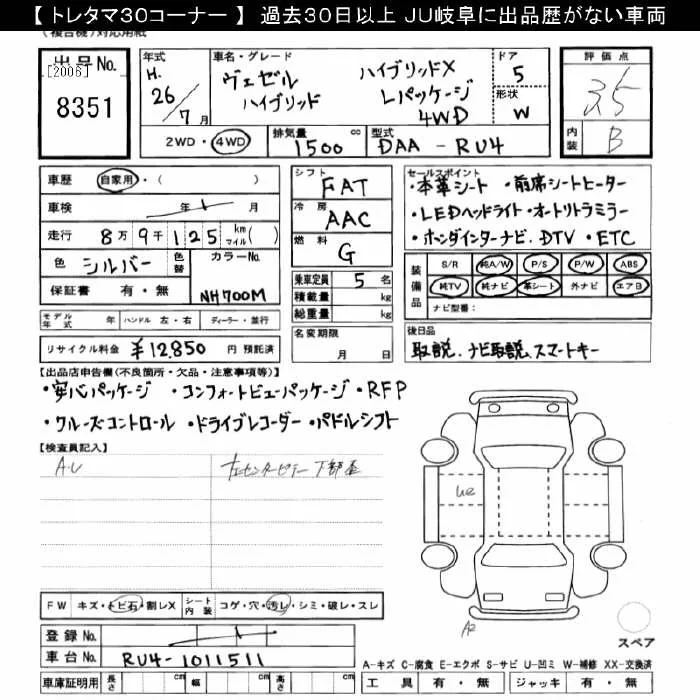 【トレタマ30コーナー】 過去30日以上 JU岐阜に出品歴がない車両
(複合機)対応用紙
出品No. [2006] 8351
年式 H. 26/7月
車名・グレード ヴェゼル ハイブリッド ハイブリッドX Lパッケージ 4WD
ドア 5
形状 W
2WD・4WD
排気量 1500 cc
型式 DAA-RU4
評価点 3.5
内装 B
車歴 自家用・( )
車検 年 月
走行 8万9千125 km マイル( )
色 シルバー 色替 カラーNo. NH700M
保証書 有・無
シフト FAT
冷房 AAC
燃料 G
乗車定員 5名
積載量 kg
総重量 kg
セールスポイント
・本革シート ・前席シートヒーター
・LEDヘッドライト・オートリトラミラー
・ホンダインターナビ.DTV ・ETC
装備品 S/R 純A/W P/S P/W ABS
純TV 純ナビ 革シート 外ナビ エアB
ナビ型番:
モデル年式 ハンドル 左・右 ディーラー・並行
名変期限 月 日
リサイクル料金 ¥12,850 円 預託済
後日品
取説.ナビ取説.スマートキー
【出品店申告欄(不良箇所・欠品・注意事項等)】
・安心パッケージ ・コンフォートビューパッケージ・RFP
・クルーズコントロール ・ドライブレコーダー・パドルシフト
【検査員記入】
A.U
下部歪
U2
A2
スペア
FW キズ・トビ石・割レX シート内装 コゲ・穴・汚レ・シミ・破レ・スレ
登録No.
車台No. RU4-1011511
車庫証明用 長さ cm 幅 cm 高さ cm
A-キズ C-腐食 E-エクボ S-サビ U-凹ミ W-補修 XX-交換済
工具 有・無 ジャッキ 有・無